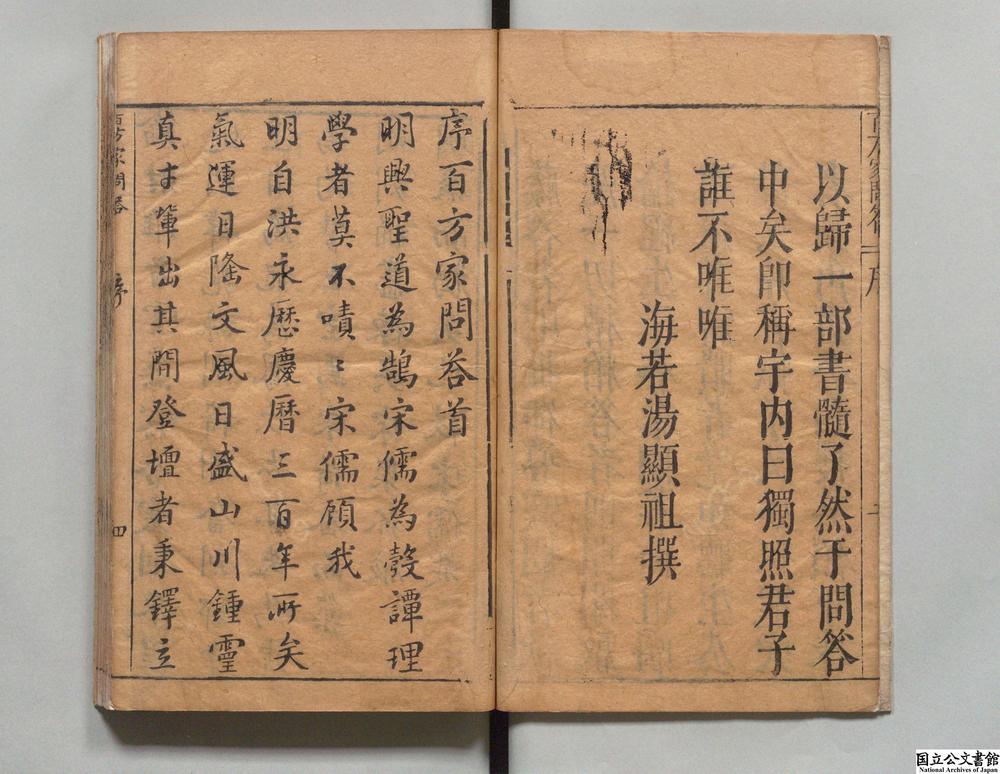 以歸一部書髓了然于問答
中矣卽稱宇內曰獨照君子
誰不唯唯
海若湯顯祖撰
序百方家問荅首
明興聖道為鵠宋儒為彀譚理
學者莫不嘖〻宋儒顧我
明自洪永歷慶曆三百年所矣
氣運日隆文風日盛山川鍾靈
真才輩出其間登壇者秉鐸立
百方家問答
序
四
国立公文書館
National Archives of Japan